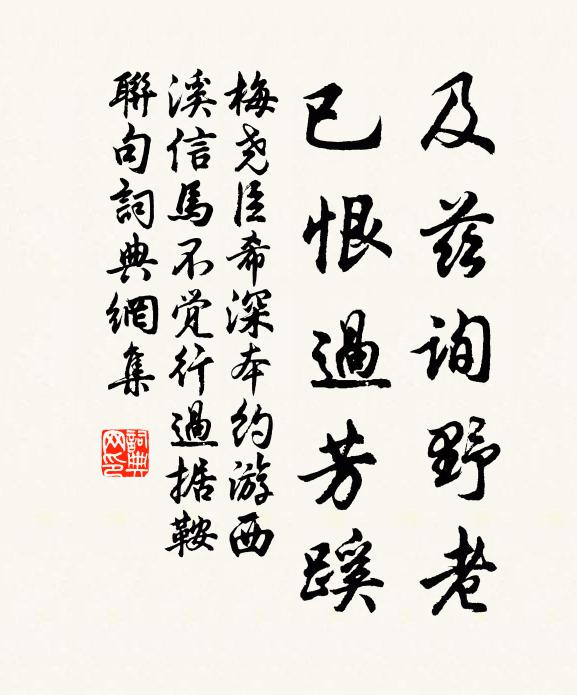 及兹詢野老
已恨過芳蹊
梅尧臣希深本約游西
溪信馬不觉行過据鞍
聯句詞典網集
詞典网印